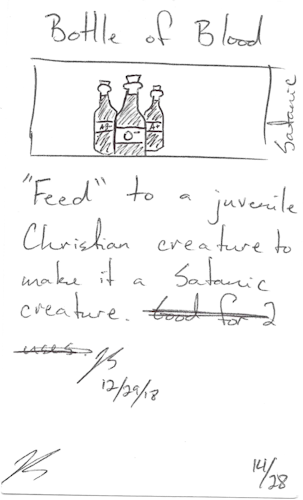 Bottle of Blood
Satanic
AB- O- A+
"Feed" to a juvenile
Christian creature to
make it a Satanic
creature. Good for 2
uses.
12/29/18
14/28